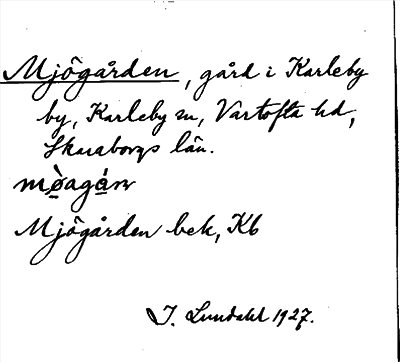 Mjögården, gård i Karleby
by, Karleby sn, Vartofta hd,
Skaraborgs län.
Mjögården bek, Kb
J. Lundahl 1927.